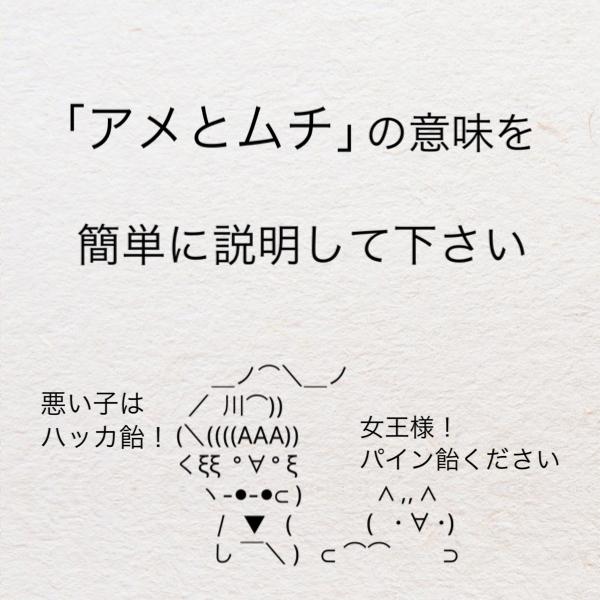 「アメとムチ」の意味を
簡単に説明して下さい
悪い子は
ハッカ飴！
女王様！
パイン飴ください
＿ノ⌒＼＿ノ
／ 川⌒))
(＼((((AAA))
くξξ °∀°ξ
ヽ-●-●⊂ )
/ ▼ (
し ￣＼ )
∧,,∧
( ・∀・)
⊂⌒⌒ ⊃